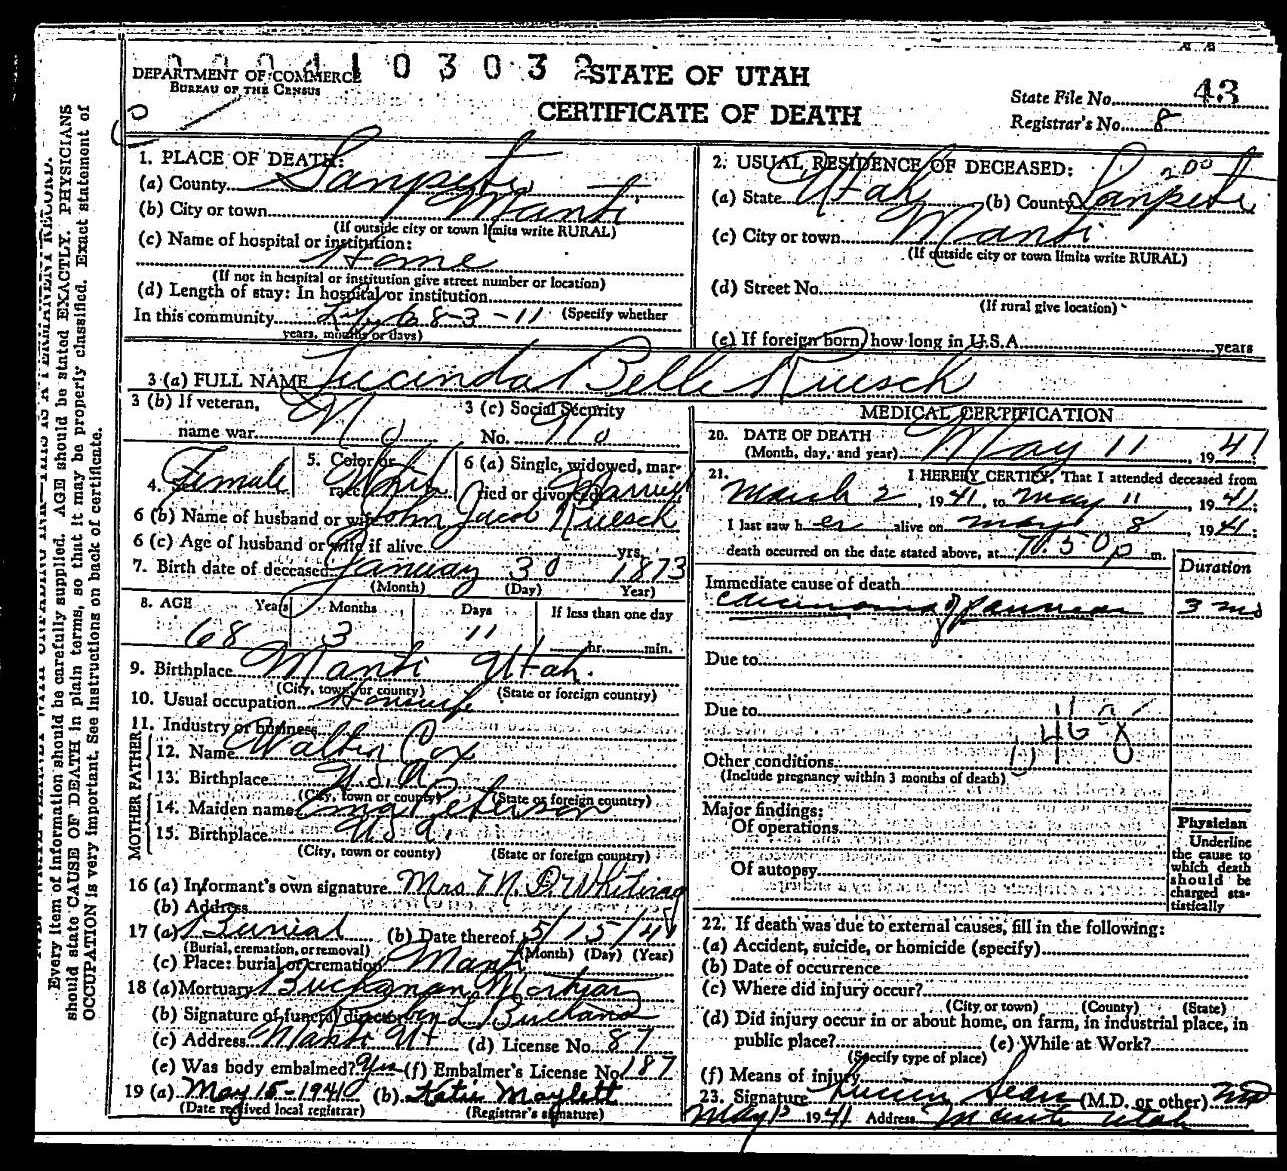 0 0 0 4 1 0 3 0 3 2
DEPARTMENT OF COMMERCE
BUREAU OF THE CENSUS
STATE OF UTAH
CERTIFICATE OF DEATH
State File No. 43
Registrar's No. 8
1. PLACE OF DEATH:
(a) County Sanpete
(b) City or town Manti
(If outside city or town limits write RURAL)
(c) Name of hospital or institution:
Home
(If not in hospital or institution give street number or location)
(d) Length of stay: In hospital or institution
In this community Life 68-3-11 (Specify whether
years, months or days)
2. USUAL RESIDENCE OF DECEASED:
200
(a) State Utah (b) County Sanpete
(c) City or town Manti
(If outside city or town limits write RURAL)
(d) Street No.
(If rural give location)
(e) If foreign born, how long in U.S.A. years
3 (a) FULL NAME Lucinda Belle Ruesch
3 (b) If veteran, name war No
3 (c) Social Security No. No
4. Female
5. Color or race White
6 (a) Single, widowed, married or divorced Married
6 (b) Name of husband or wife John Jacob Ruesch
6 (c) Age of husband or wife if alive yrs.
7. Birth date of deceased January 30 1873
(Month) (Day) Year)
8. AGE Years Months Days If less than one day
68 3 11 hr. min.
9. Birthplace Manti Utah.
(City, town, or county) (State or foreign country)
10. Usual occupation Housewife
11. Industry or business
FATHER
12. Name Walter Cox
13. Birthplace U.S.A.
(City, town or county) (State or foreign country)
MOTHER
14. Maiden name Peterson
15. Birthplace U.S.A.
(City, town or county) (State or foreign country)
16 (a) Informant's own signature Mrs M. D. Whitney
(b) Address
17 (a) Burial (b) Date thereof 5/15/41
(Burial, cremation, or removal) (Month) (Day) (Year)
(c) Place: burial or cremation Manti
18 (a) Mortuary Buchanan Mortuary
(b) Signature of funeral director
(c) Address Manti Ut (d) License No. 87
(e) Was body embalmed? Yes (f) Embalmer's License No. 187
19 (a) May 15-1941 (b) Katie Maylett
(Date received local registrar) (Registrar's signature)
MEDICAL CERTIFICATION
20. DATE OF DEATH May 11, 1941
(Month, day, and year)
21. I HEREBY CERTIFY, That I attended deceased from
March 2, 1941, to May 11, 1941;
I last saw her alive on May 8 1941;
death occurred on the date stated above, at m.
Duration
Immediate cause of death
carcinoma of pancreas 3 mo
Due to
Due to
46 g
Other conditions
(Include pregnancy within 3 months of death)
Major findings:
Of operations
Of autopsy
Physician
Underline
the cause to
which death
should be
charged sta-
tistically
22. If death was due to external causes, fill in the following:
(a) Accident, suicide, or homicide (specify)
(b) Date of occurrence
(c) Where did injury occur?
(City or town) (County) (State)
(d) Did injury occur in or about home, on farm, in industrial place, in
public place? (e) While at Work?
(Specify type of place)
(f) Means of injury
23. Signature Lucien Sears (M.D. or other) MD
May 1941 Address Manti Utah
Every item of information should be carefully supplied. AGE should be stated EXACTLY. PHYSICIANS
should state CAUSE OF DEATH in plain terms, so that it may be properly classified. Exact statement of
OCCUPATION is very important. See instructions on back of certificate.